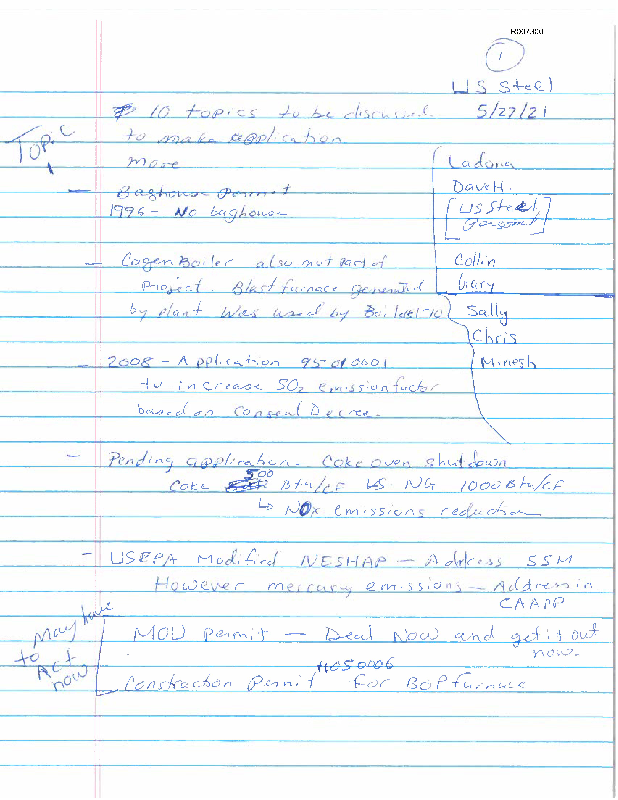 R007300
1
US Steel
10 topics to be discussed. 5/27/21
to make application
more
Topic 1
Ladona
Dave H.
[US Steel
personnel]
Collin
Gary
Sally
Chris
Minesh
- Baghouse Permit
1996 - No baghouse
- Cogen Boiler also not part of
project. Blast furnace generated
by plant was used by Boiler 1-10
- 2008 - Application 95010001
to increase SO2 emission factor
based on Consent Decree.
- Pending application. Coke oven shutdown
500
Coke Btu/CF vs NG 1000 Btu/CF
↳ NOx emissions reduction
- USEPA Modified NESHAP - Address SSM
However mercury emissions - Address in
CAAPP
May have
to Act
now
MOU Permit - Deal Now and get it out
now.
11050006
Construction Permit For BOP furnace